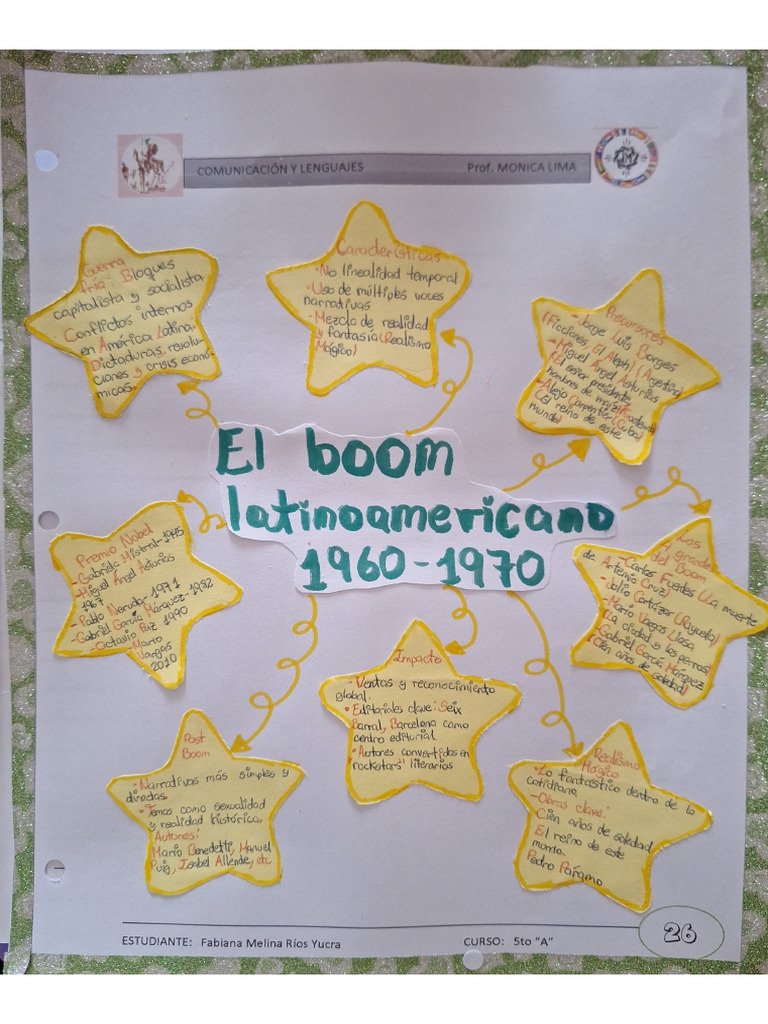 COMUNICACIÓN Y LENGUAJES Prof. MONICA LIMA
Guerra
fría Bloques
capitalista y socialista
Conflictos internos
en América Latina.
Dictaduras, revolu-
ciones y crisis econó-
micas.
Características
•No linealidad temporal
•Uso de múltiples voces
narrativas
•Mezcla de realidad
y fantasía (Realismo
Mágico)
Precursores
-Jorge Luis Borges
(Ficciones El Aleph) (Argentina)
-Miguel Ángel Asturias
(El señor presidente,
hombres de maíz)
-Alejo Carpentier (Cuba)
(El reino de este
mundo)
El boom
latinoamericano
1960-1970
Premio Nobel
-Gabriela Mistral-1945
-Miguel Ángel Asturias
1967
-Pablo Neruda-1971
-Gabriel García Márquez-1982
-Octavio Paz 1990
-Mario
Vargas
2010
Los
4 grandes
del Boom
-Carlos Fuentes (La muerte
de Artemio Cruz)
-Julio Cortázar (Rayuela)
-Mario Vargas Llosa
(La ciudad y los perros)
Gabriel García Márquez
(Cien años de soledad)
Impacto
-Ventas y reconocimiento
global.
•Editoriales clave: Seix
Barral, Barcelona como
centro editorial.
•Autores convertidos en
rockstars" literarios
Post
Boom
•Narrativas más simples y
directas.
•Temas como sexualidad
y realidad histórica.
Autores:
Mario Benedetti, Manuel
Puig, Isabel Allende, etc
Realismo
Mágico
•Lo fantástico dentro de lo
cotidiano
-Obras clave:
Cien años de soledad
El reino de este
mundo.
Pedro Páramo
ESTUDIANTE: Fabiana Melina Ríos Yucra CURSO: 5to "A" 26